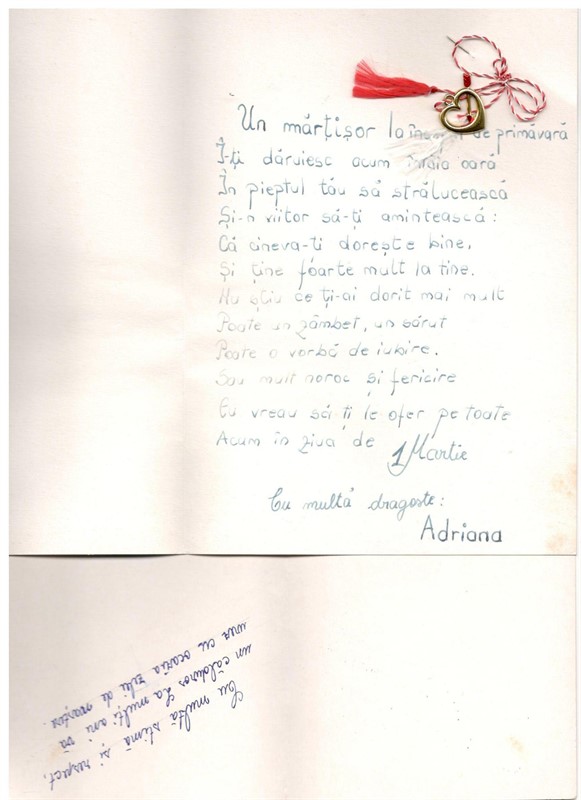 Un mărțișor la de primăvară
Î-ți dăruiesc acum întâia oară
În pieptul tău să strălucească
Și-n viitor să-ți amintească:
Că cineva-ți dorește bine,
Și ține foarte mult la tine.
Nu știu ce ți-ai dorit mai mult
Poate un zâmbet, un sărut
Poate o vorbă de iubire.
Sau mult noroc și fericire
Eu vreau să ți le ofer pe toate
Acum în ziua de 1 Martie
Cu multă dragoste:
Adriana
Cu multă stimă și respect,
un călduros La mulți ani vă
urez cu ocazia zilei de